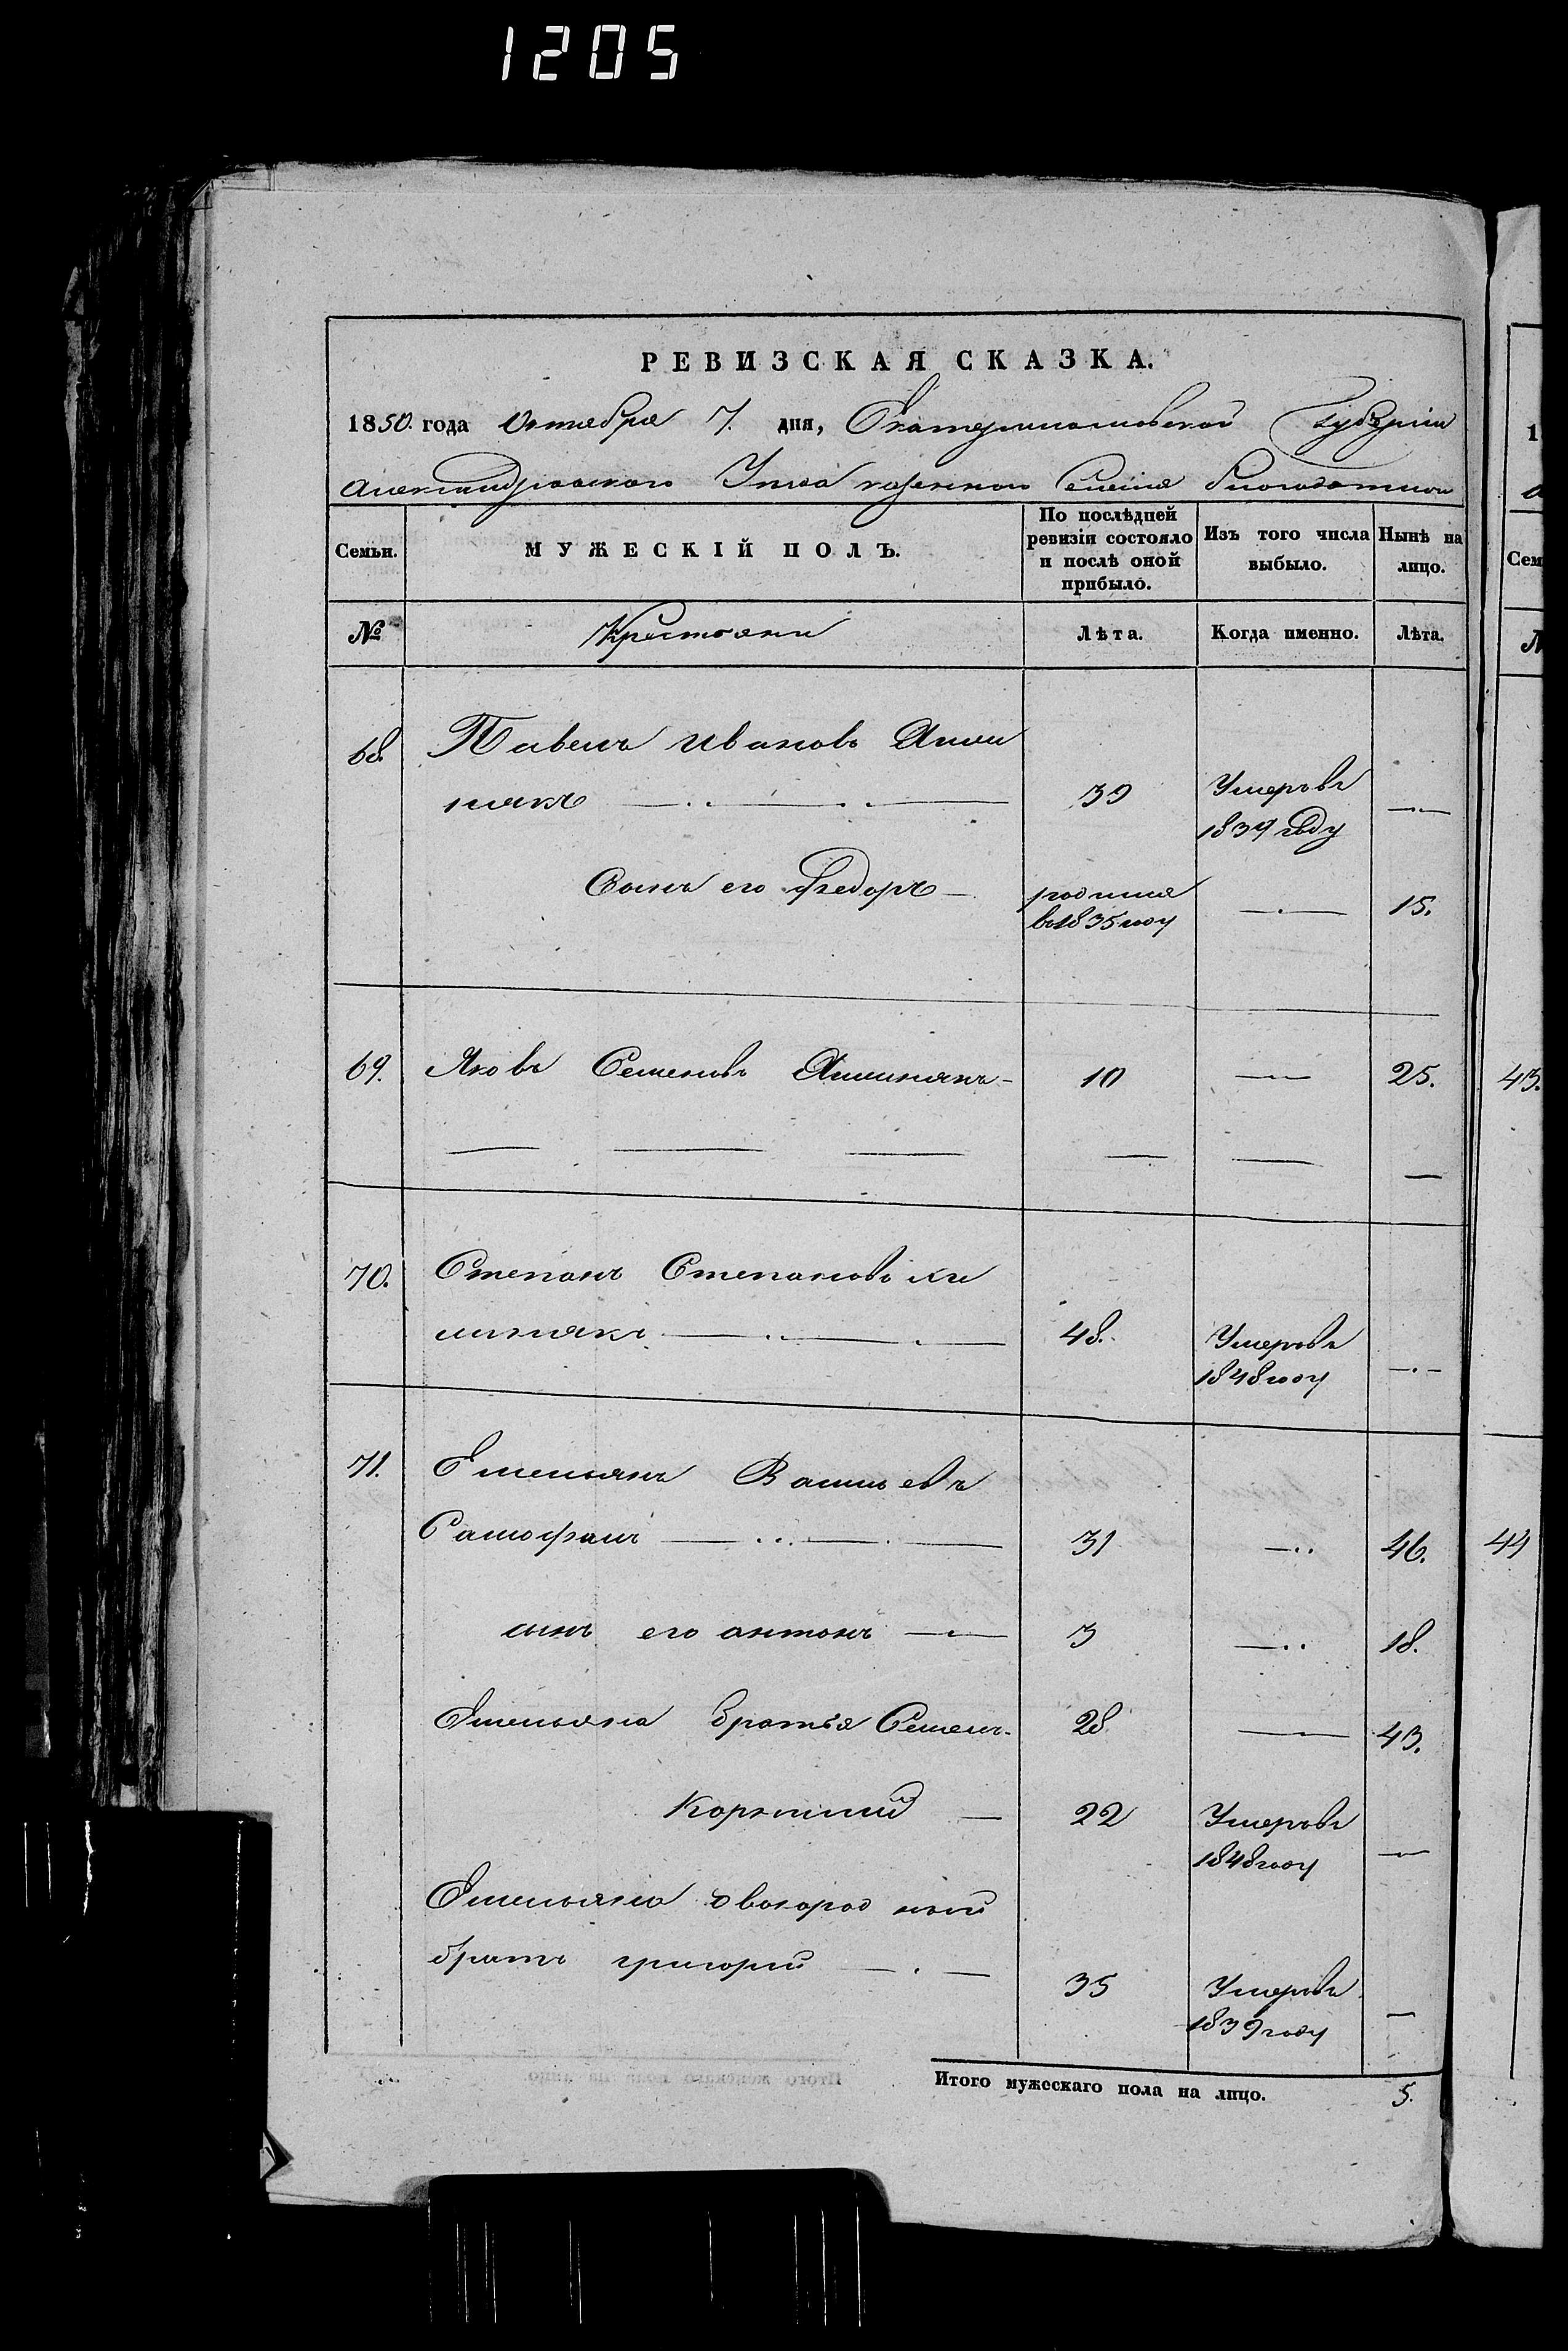 1205
РЕВИЗСКАЯ СКАЗКА.
1850. года Октября 7. дня, Екатеринославской Губернии
Александровского Уезда казенного Селения
Семьи. МУЖЕСКІЙ ПОЛЪ. По послѣдней ревизіи состояло и послѣ оной прибыло. Изъ того числа выбыло. Нынѣ на лицо.
№ Крестьяни Лѣта. Когда именно. Лѣта.
68. Павелъ Ивановъ
39 Умеръ въ
1839 году
Сынъ его Федоръ родился
въ 1835 году 15.
69. Яковъ Семеновъ 10 25.
70. Степанъ Степановъ
48. Умеръ въ
1848 году
71. Емельянъ Васильевъ
31 46.
сынъ его антонъ 3 18.
Емельяна братья Семенъ 28 43.
Корнилий 22 Умеръ въ
1848 году
Емельяна двоюродний
братъ григорий
35 Умеръ въ
1839 году
Итого мужескаго пола на лицо. 5.
Сем
№
43.
44